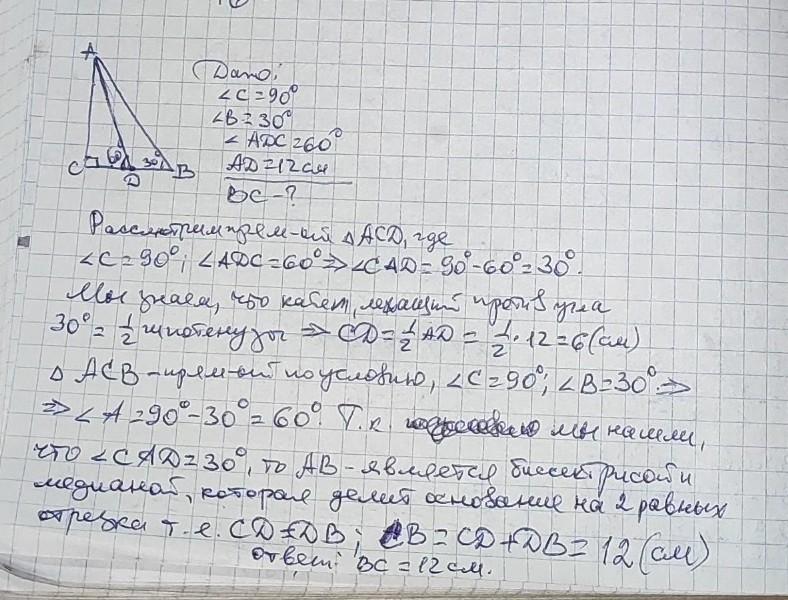 A
C
60°
30°
B
D
Дано:
∠C=90°
∠B=30°
∠ADC=60°
AD=12см
BC-?
Рассмотрим прям-ый △ACD, где
∠C=90°; ∠ADC=60°⇒∠CAD=90°-60°=30°.
Мы знаем, что катет, лежащий против угла
30°=1/2 гипотенузы ⇒ CD=1/2 AD = 1/2·12=6(см)
△ ACB-прям-ый по условию, ∠C=90°; ∠B=30°⇒
⇒∠A=90°-30°=60°. Т.к. мы нашли,
что ∠CAD=30°, то AB-является биссектрисой и
медианой, которая делит основание на 2 равных
отрезка т.е. CD=DB; CB=CD+DB=12(см)
ответ: BC=12см.